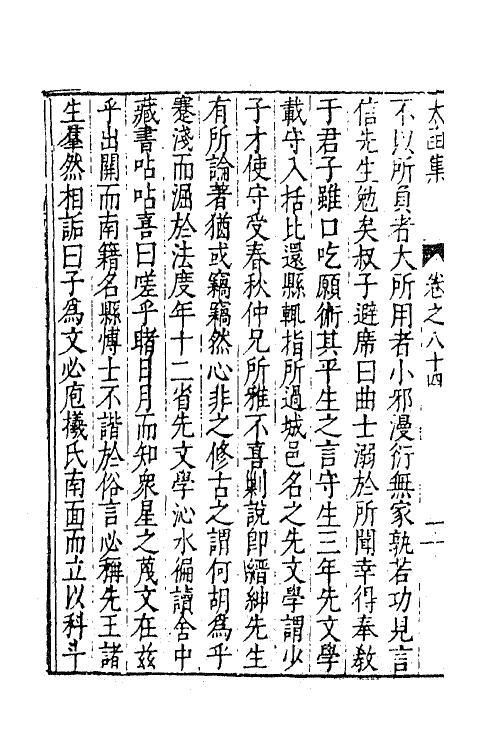 太函集 卷之八十四 一
不以所負者大所用者小邪漫衍無家孰若功見言
信先生勉矣叔子避席曰曲士溺於所聞幸得奉敎
于君子雖口吃願術其平生之言守生三年先文學
載守入括比還縣輒指所過城邑名之先文學謂少
子才使守受春秋仲兄所雅不喜剿說卽縉紳先生
有所論著猶或竊竊然心非之修古之謂何胡爲乎
蹇淺而涸於法度年十二省先文學沁水徧讀舍中
藏書呫呫喜曰嗟乎睹日月而知衆星之蔑文在茲
乎出關而南籍名縣慱士不諧於俗言必稱先王諸
生羣然相詬曰子爲文必庖犧氏南面而立以科斗